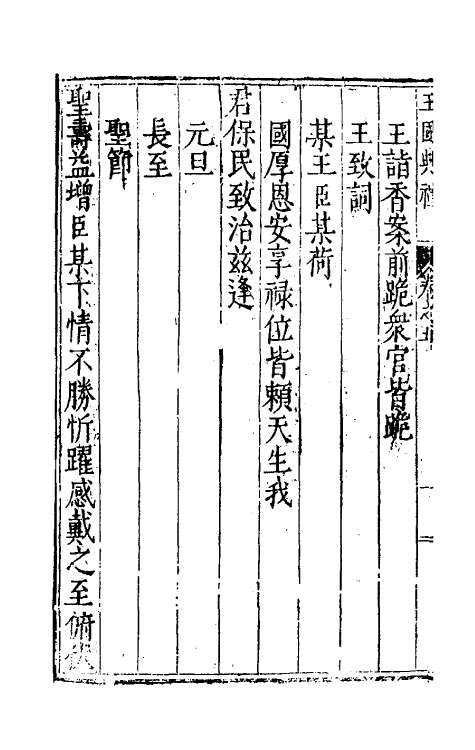 王國典禮 卷之五 一 二
王詣香案前跪衆官皆跪
王致詞
某王臣某荷
國厚恩安享祿位皆賴天生我
君保民致治兹逢
元旦
長至
聖節
聖壽益增臣某下情不勝忻躍感戴之至俯伏